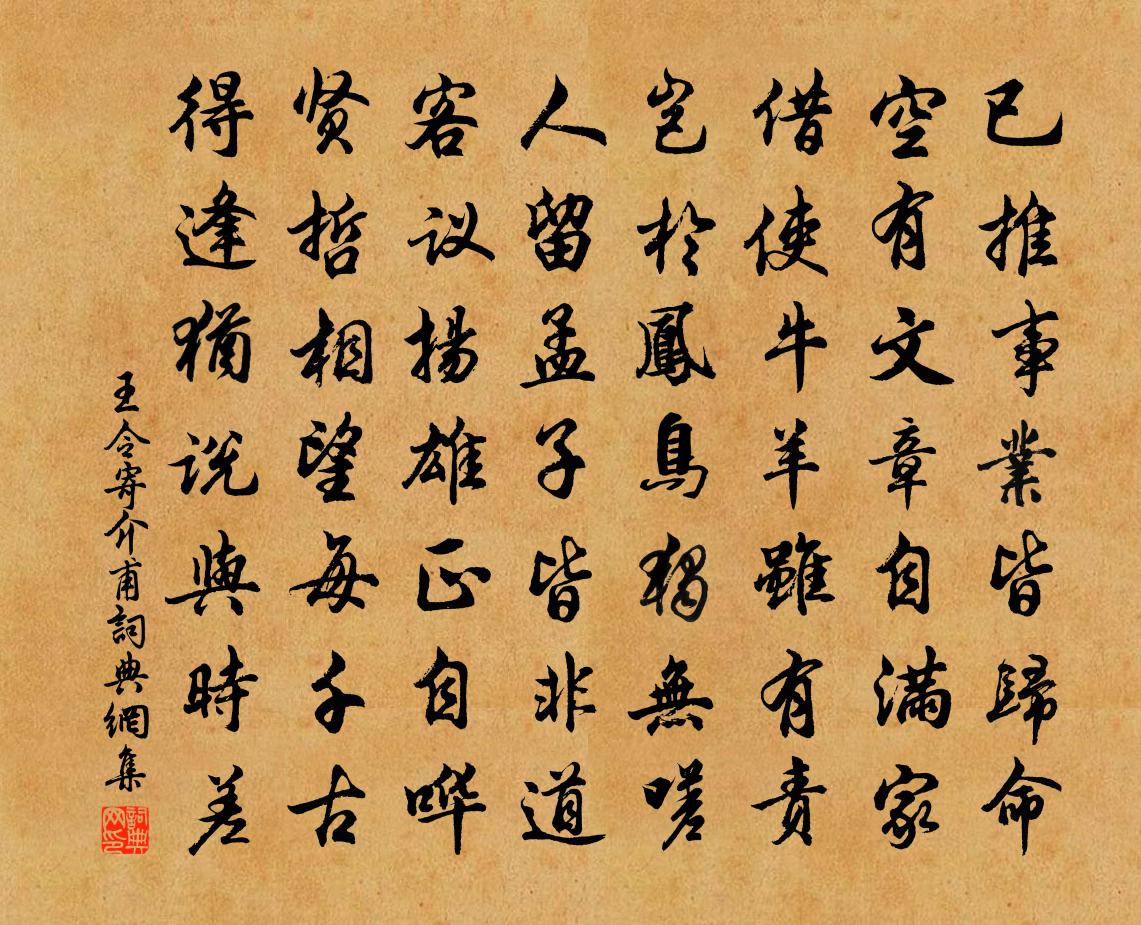 已推事業皆歸命
空有文章自滿家
借使牛羊雖有責
豈於鳳鳥獨無嗟
人留孟子皆非道
客议揚雄正自哗
贤哲相望每千古
得逢猶说與時差
王令寄介甫詞典網集
詞典网印